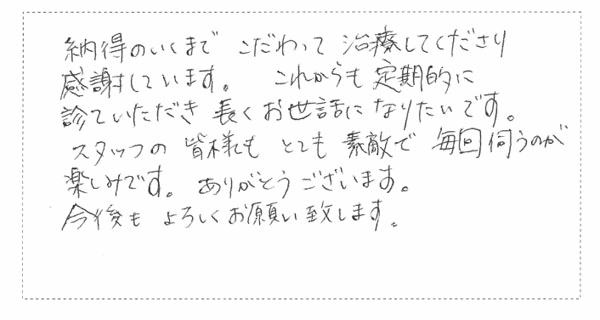 納得のいくまで こだわって 治療してくださり
感謝しています。 これからも 定期的に
診ていただき 長くお世話になりたいです。
スタッフの 皆様も とても 素敵で 毎回伺うのが
楽しみです。 ありがとうございます。
今後も よろしくお願い致します。